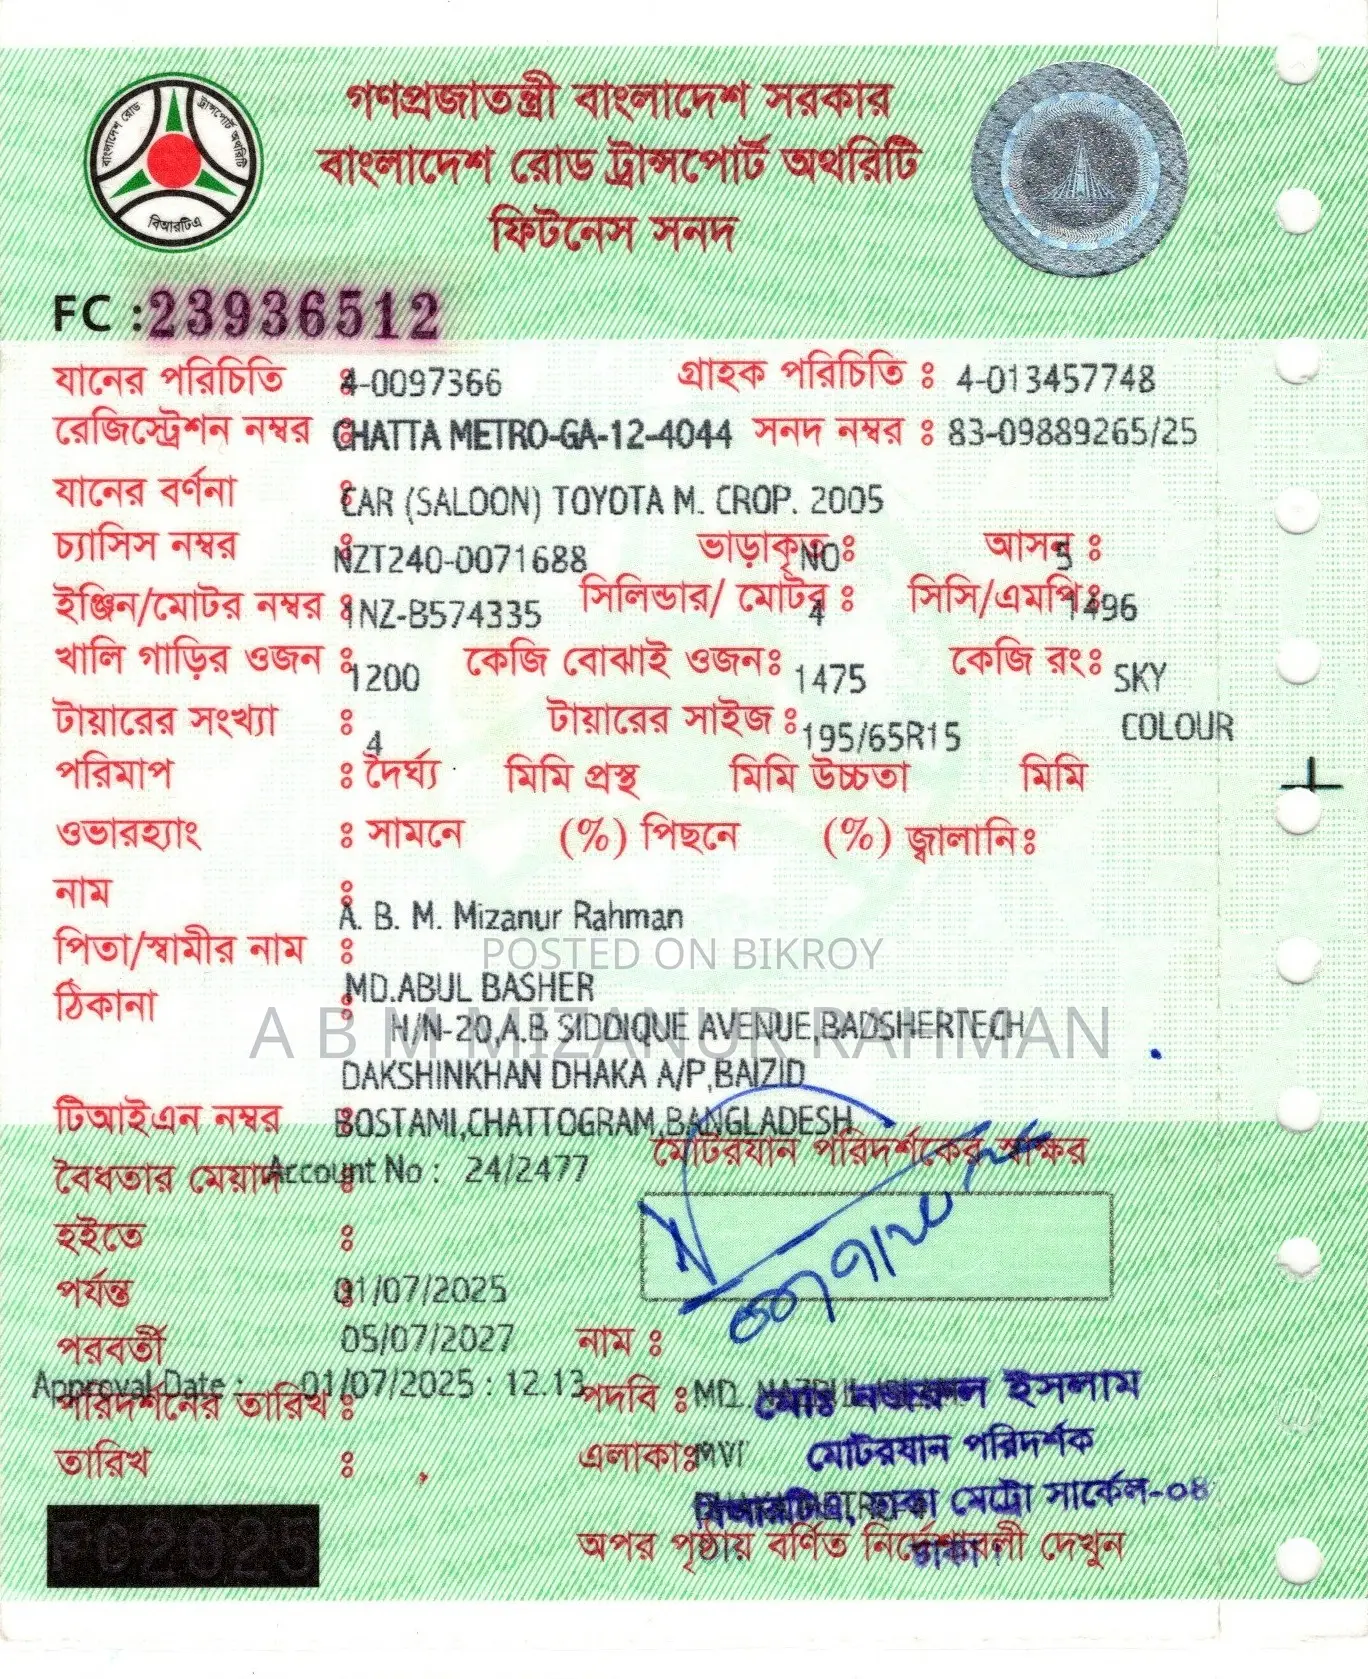 গণপ্রজাতন্ত্রী বাংলাদেশ সরকার
বাংলাদেশ রোড ট্রান্সপোর্ট অথরিটি
ফিটনেস সনদ
বাংলাদেশ রোড ট্রান্সপোর্ট অথরিটি
বিআরটিএ
FC : 23936512
যানের পরিচিতি ঃ 4-0097366 গ্রাহক পরিচিতি ঃ 4-013457748
রেজিস্ট্রেশন নম্বর ঃ CHATTA METRO-GA-12-4044 সনদ নম্বর ঃ 83-09889265/25
যানের বর্ণনা ঃ CAR (SALOON) TOYOTA M. CROP. 2005
চ্যাসিস নম্বর ঃ NZT240-0071688 ভাড়াকৃত ঃ NO আসন ঃ 5
ইঞ্জিন/মোটর নম্বর ঃ 1NZ-B574335 সিলিন্ডার/ মোটর ঃ 4 সিসি/এমপি ঃ 1496
খালি গাড়ির ওজন ঃ 1200 কেজি বোঝাই ওজন ঃ 1475 কেজি রং ঃ SKY
টায়ারের সংখ্যা ঃ 4 টায়ারের সাইজ ঃ 195/65R15 COLOUR
পরিমাপ ঃ দৈর্ঘ্য মিমি প্রস্থ মিমি উচ্চতা মিমি
ওভারহ্যাং ঃ সামনে (%) পিছনে (%) জ্বালানি ঃ
নাম ঃ A. B. M. Mizanur Rahman
পিতা/স্বামীর নাম ঃ
POSTED ON BIKROY
MD.ABUL BASHER
ঠিকানা ঃ
H/N-20,A.B SIDDIQUE AVENUE,BADSHERTECH
A B M MIZANUR RAHMAN
DAKSHINKHAN DHAKA A/P,BAIZID
টিআইএন নম্বর ঃ BOSTAMI,CHATTOGRAM,BANGLADESH
মোটরযান পরিদর্শকের স্বাক্ষর
বৈধতার মেয়াদ ঃ Account No : 24/2477
হইতে ঃ
পর্যন্ত ঃ 01/07/2025
পরবর্তী 05/07/2027 নাম ঃ
Approval Date : 01/07/2025 : 12.13
পরিদর্শনের তারিখ ঃ পদবি ঃ MD.
মোঃ নজরুল ইসলাম
তারিখ ঃ এলাকা ঃ MVI
মোটরযান পরিদর্শক
বিআরটিএ, ঢাকা মেট্রো সার্কেল-০৪
ঢাকা।
অপর পৃষ্ঠায় বর্ণিত নির্দেশাবলী দেখুন
FC2025